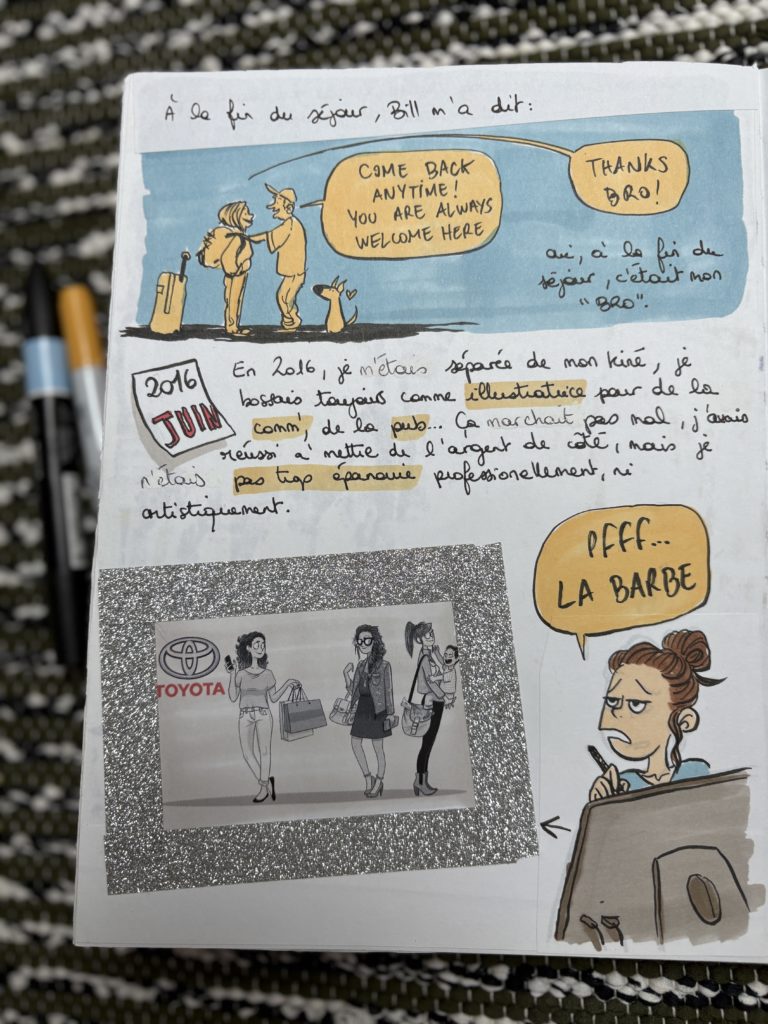 À la fin du séjour, Bill m'a dit:
COME BACK
ANYTIME!
YOU ARE ALWAYS
WELCOME HERE
THANKS
BRO!
oui, à la fin du
séjour, c'était mon
"BRO".
2016
JUIN
En 2016, je m'étais séparée de mon kiné, je
bossais toujours comme illustratrice pour de la
comm', de la pub... Ça marchait pas mal, j'avais
réussi à mettre de l'argent de côté, mais je
n'étais pas trop épanouie professionnellement, ni
artistiquement.
PFFF...
LA BARBE
TOYOTA